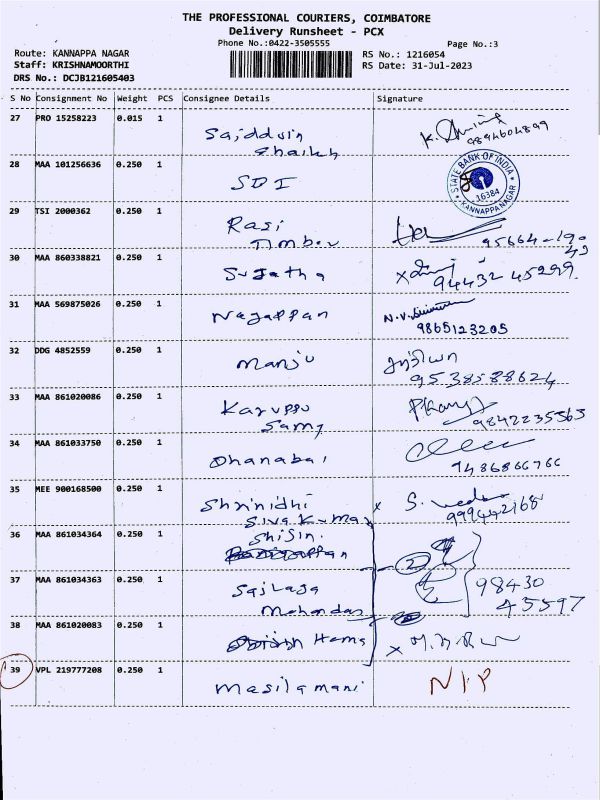 THE PROFESSIONAL COURIERS, COIMBATORE
Delivery Runsheet - PCX
Phone No.:0422-3505555
Page No.:3
Route: KANNAPPA NAGAR
RS No.: 1216054
Staff: KRISHNAMOORTHI
RS Date: 31-Jul-2023
DRS No.: DCJB121605403
S No Consignment No Weight PCS Consignee Details Signature
27 PRO 15258223 0.015 1
Saiddusin
Shaikh
9894604899
28 MAA 101256636 0.250 1
SDI
STATE BANK OF INDIA
16384
KANNAPPA NAGAR
29 TSI 2000362 0.250 1
Rasi
Timber
95664-190
30 MAA 860338821 0.250 1
Sujatha
94432 45299
31 MAA 569875026 0.250 1
Nagappan
9865123205
32 DDG 4852559 0.250 1
Manju
9538588624
33 MAA 861020086 0.250 1
Karuppu
Samy
9842235363
34 MAA 861033750 0.250 1
Dhanabal
35 MEE 900168500 0.250 1
Shrinidhi
Siva Kumar
x S.
36 MAA 861034364 0.250 1
Shisin.
2
37 MAA 861034363 0.250 1
Sailaja
Mohandas
98430
45597
38 MAA 861020083 0.250 1
Hema
x
39 VPL 219777208 0.250 1
Masilamani
NIP